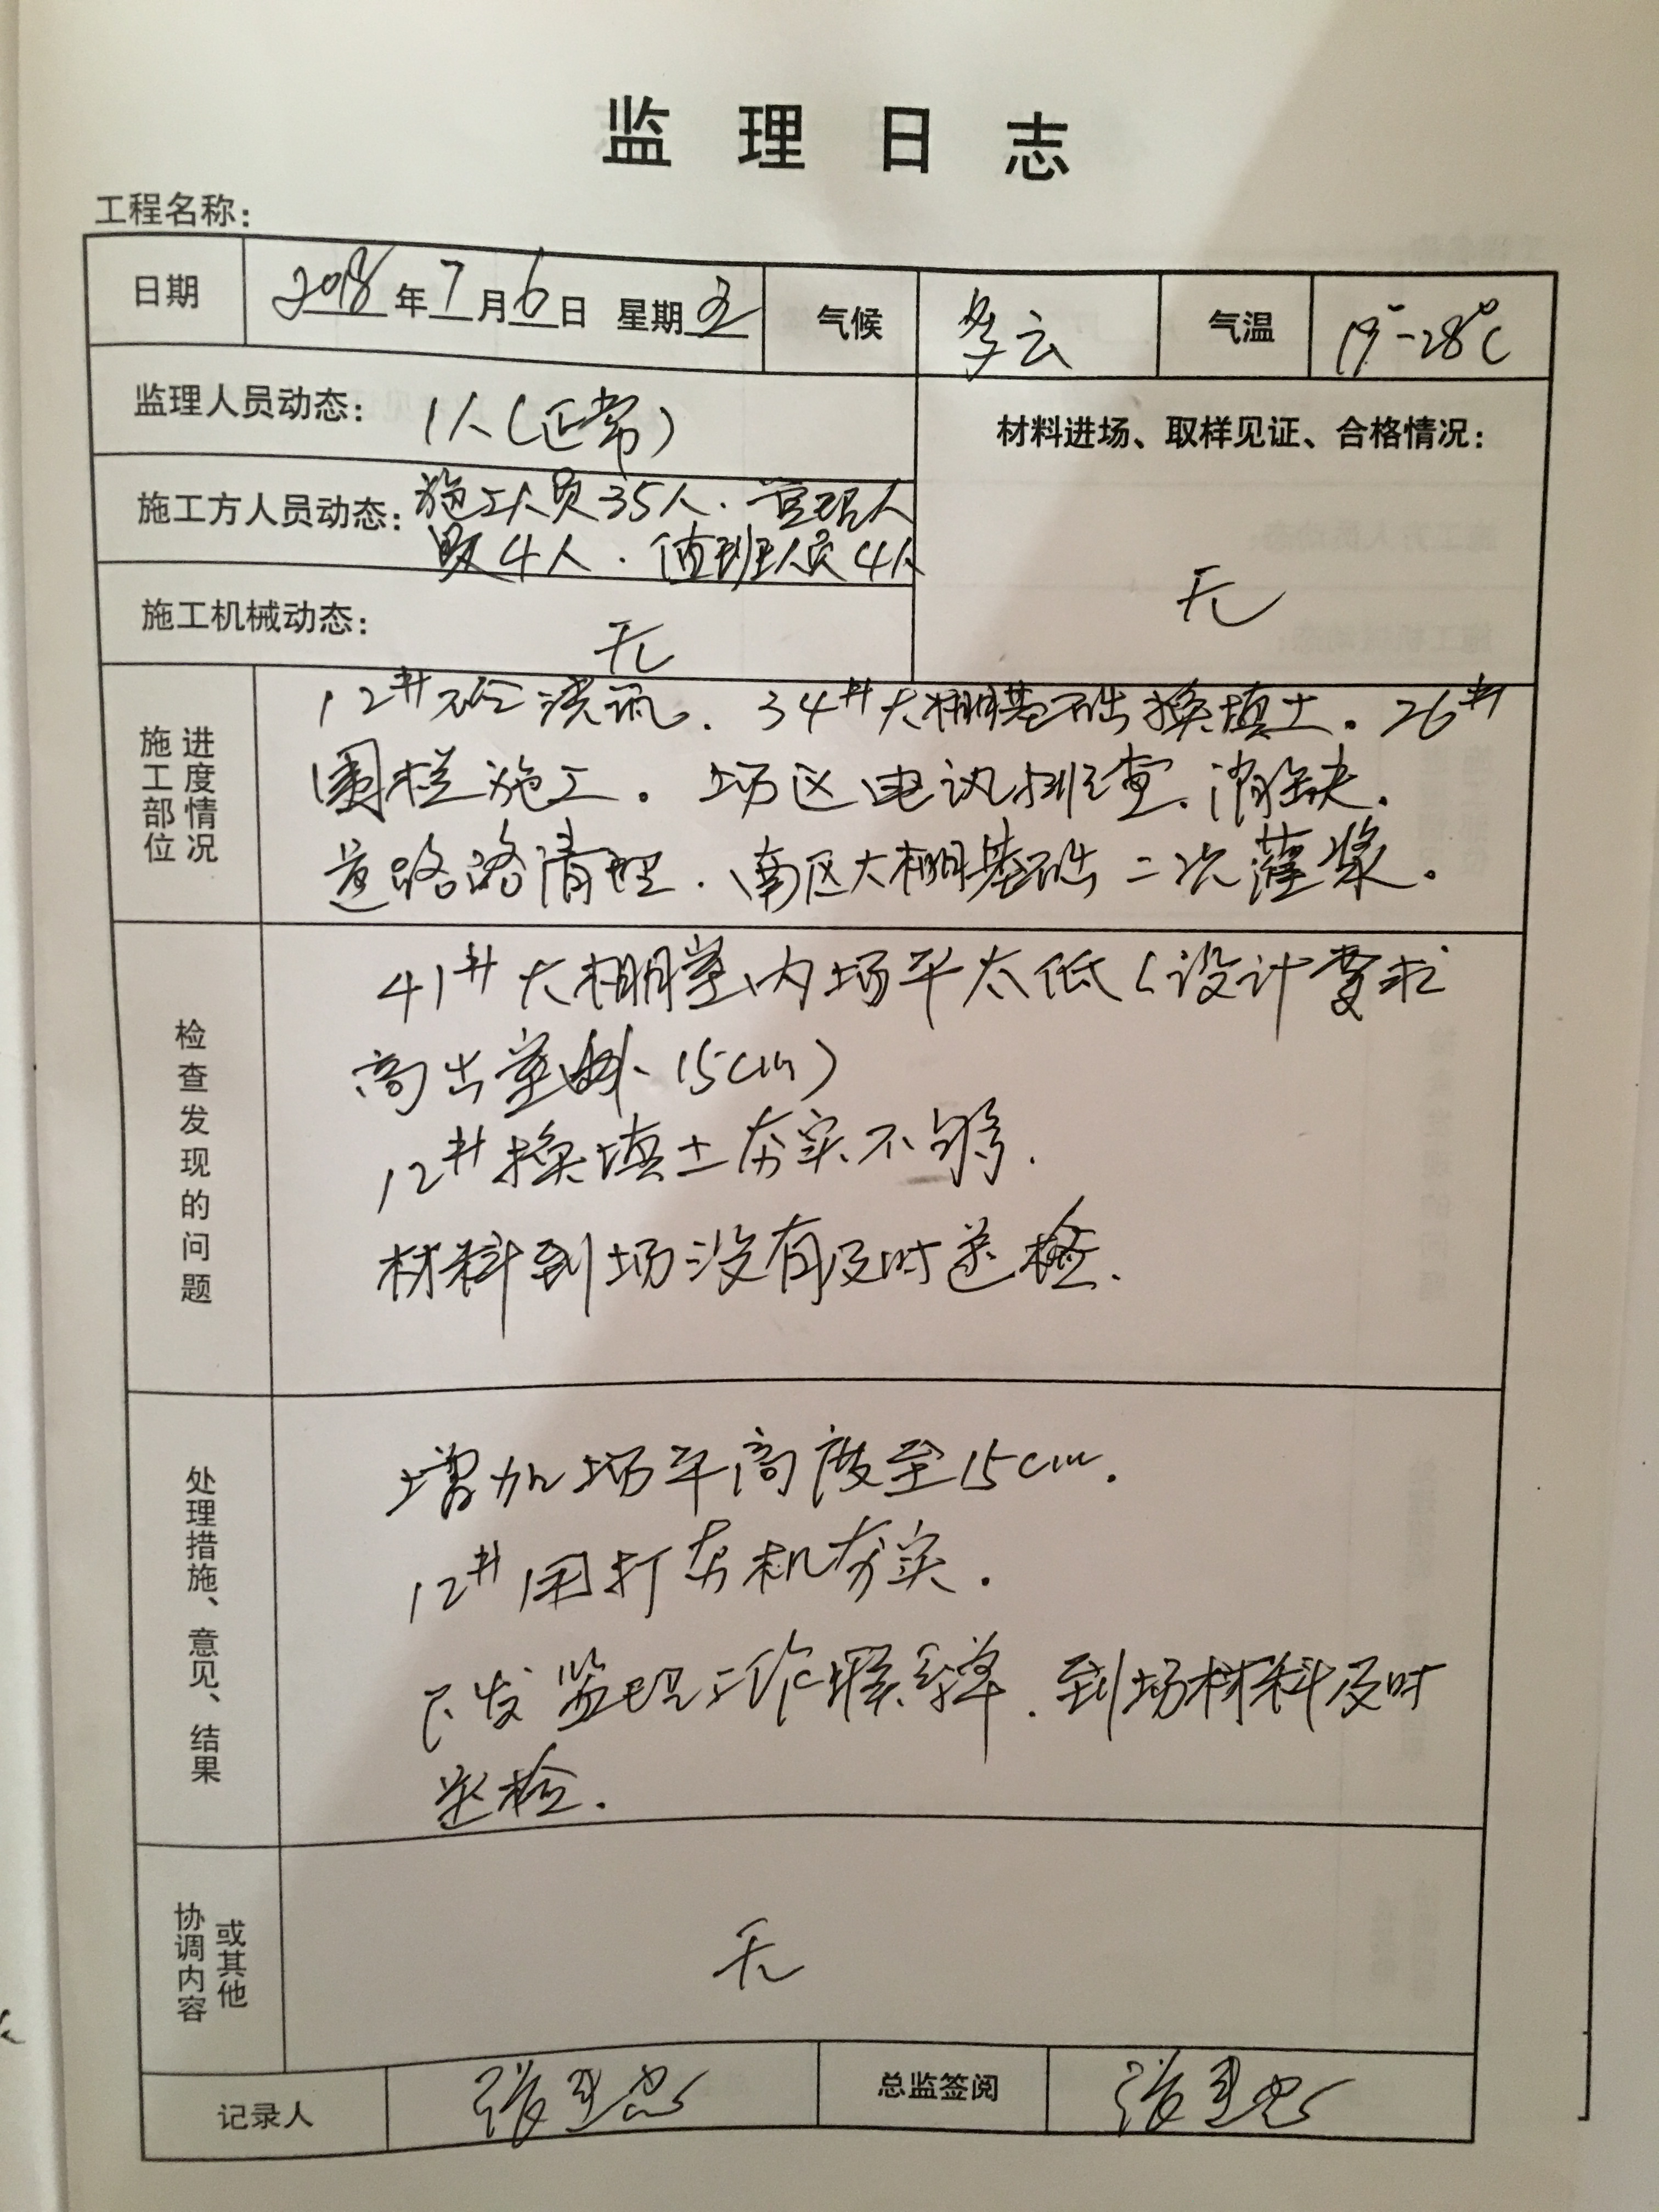 监理日志
工程名称：
日期 2018年7月6日 星期五 气候 多云 气温 19°-28°C
监理人员动态： 1人（正常）
材料进场、取样见证、合格情况：
施工方人员动态： 施工人员35人．管理人
员4人．值班人员4人
无
施工机械动态： 无
施工部位 进度情况
12#砼浇筑．34#大棚基础换填土。26#
围栏施工。场区电讯排查．消缺．
道路路清理．南区大棚基础二次灌浆。
检查发现的问题
41#大棚室内场平太低（设计要求
高出室外15cm）
12#换填土夯实不够．
材料到场没有及时送检．
处理措施、意见、结果
增加场平高度至15cm．
12#用打夯机夯实．
下发监理工作联系单．到场材料及时
送检．
协调内容 或其他
无
记录人 总监签阅